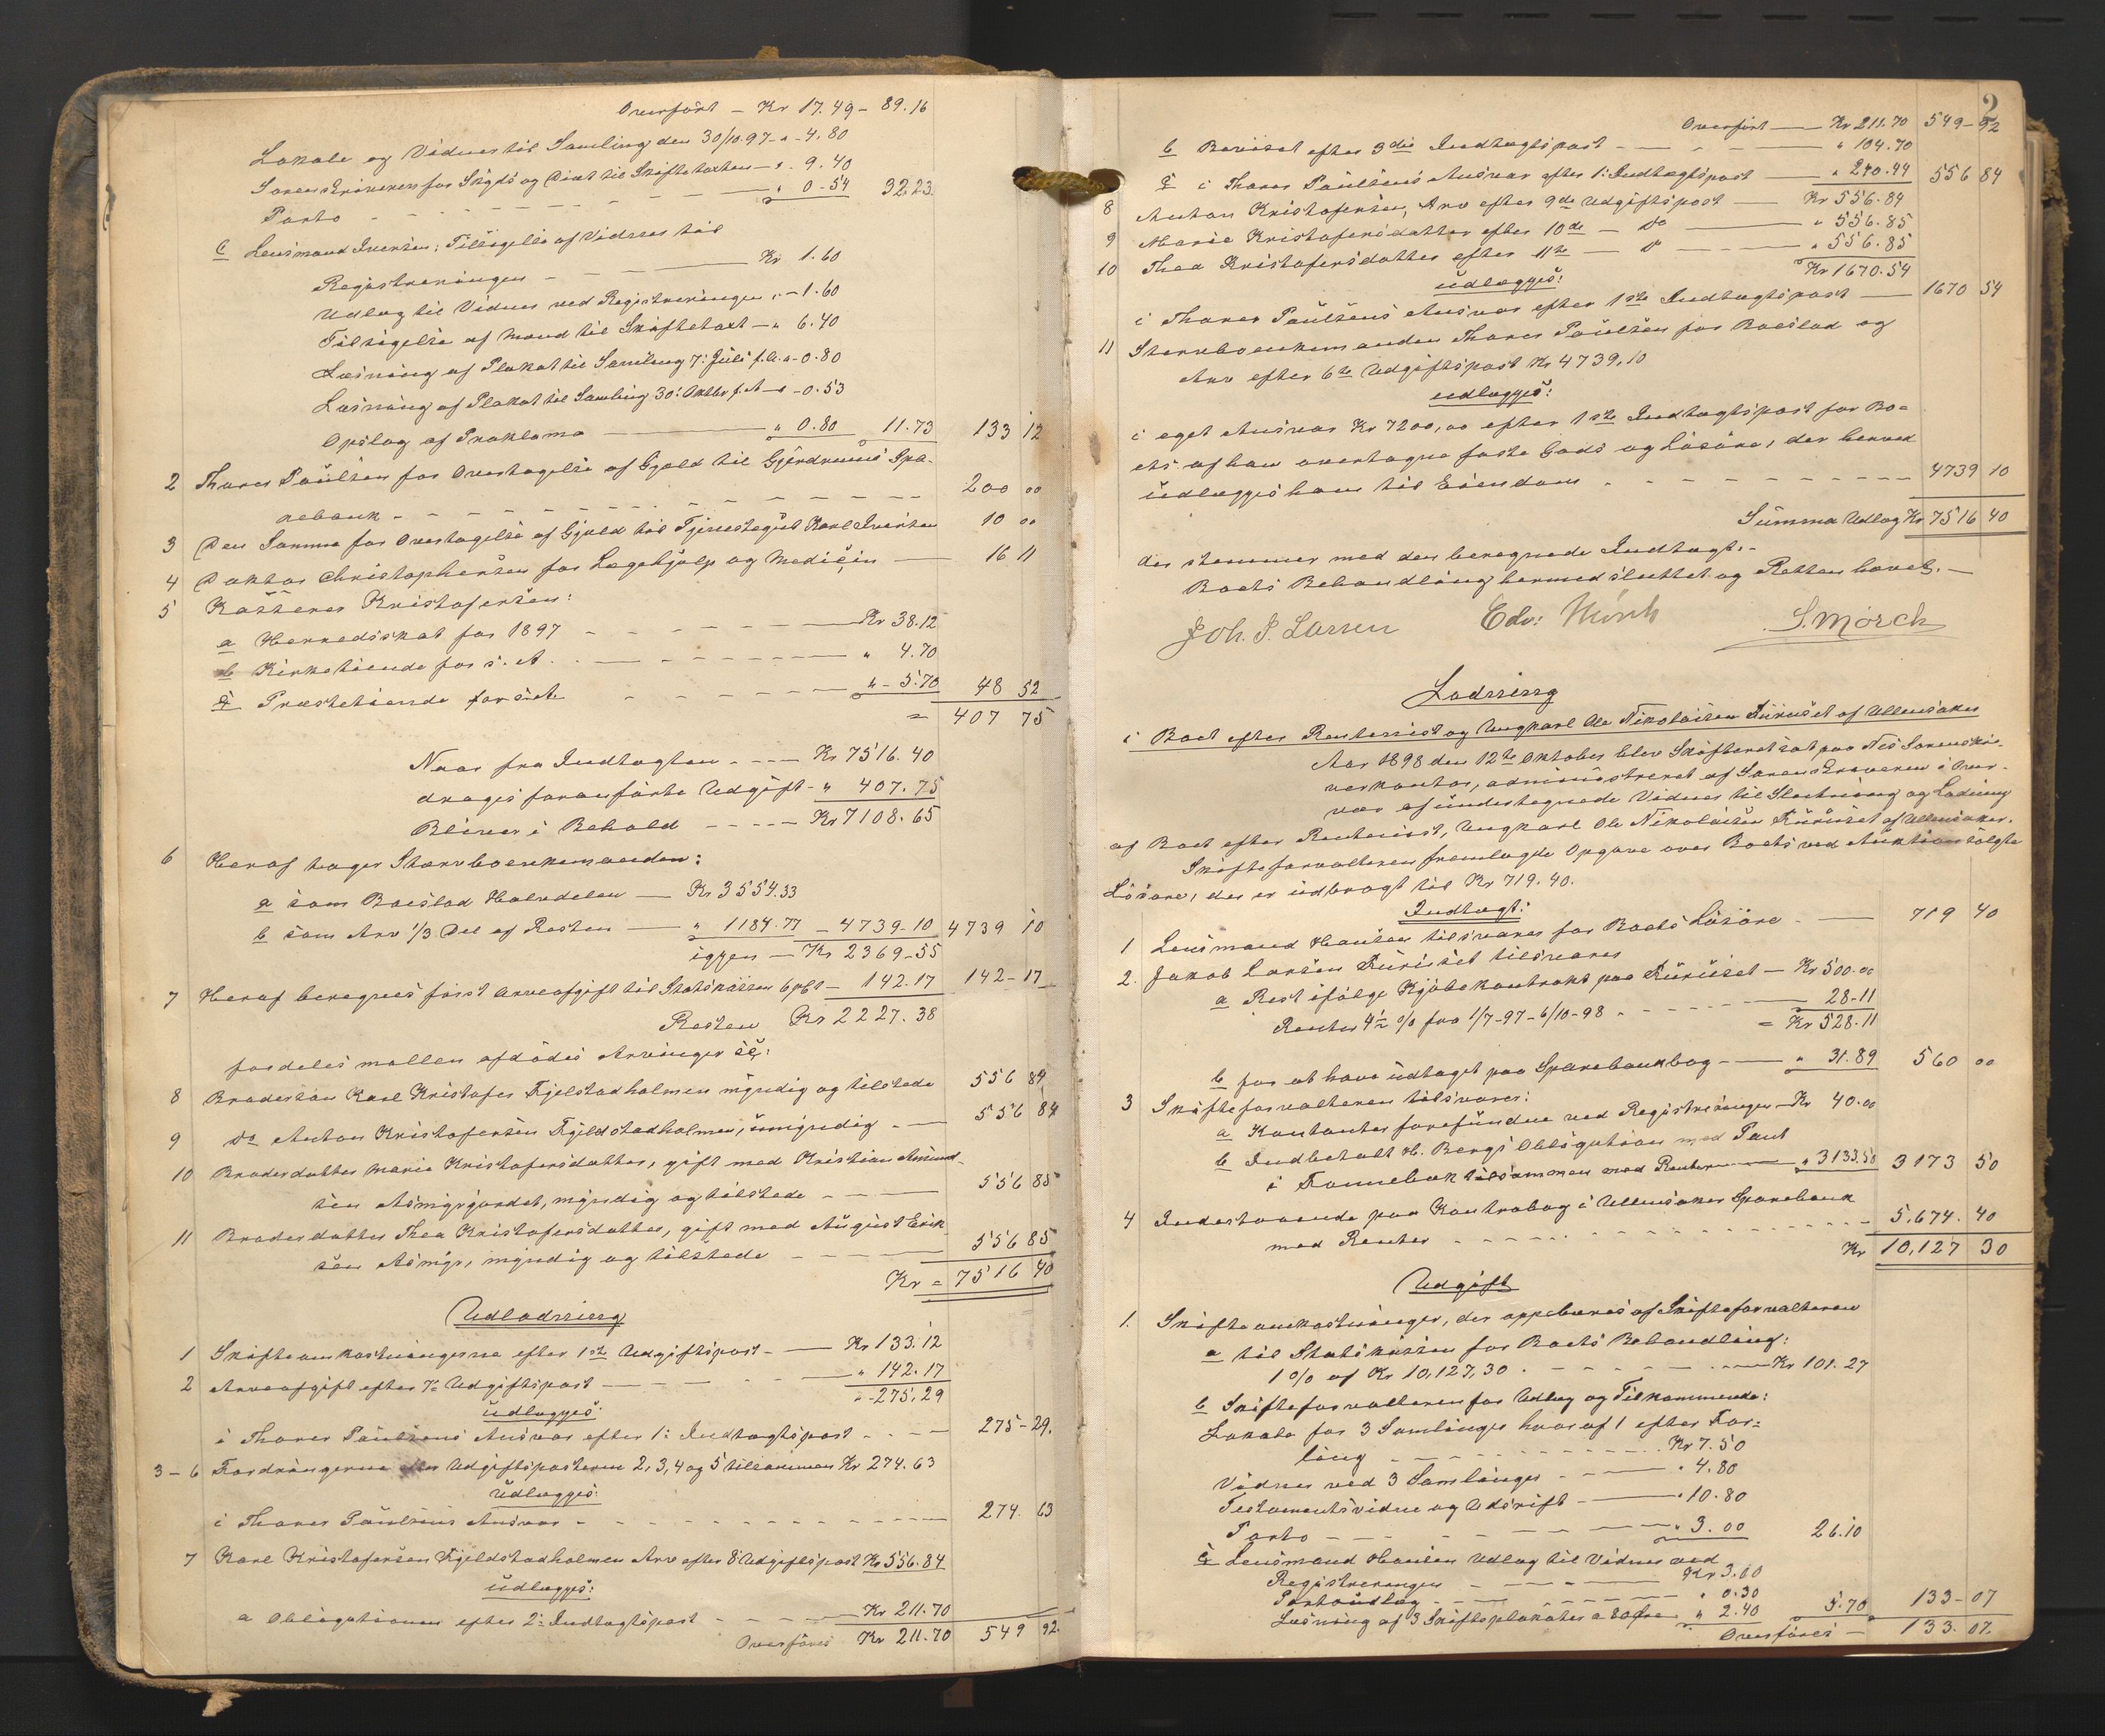 Overført — Kr 17.49 — 89.16
Lokale og Vidner til Samling den 30/10 97 - " - 4.80
Sorenskriveren for Skyds og Diæt til Skiftetaxten — " 9.40
Porto — " 0-54 32.23
c Lensmand Iversen: Tilsigelse af Vidner til
Registreringen — Kr 1.60
Udlæg til Vidner ved Registreringen " - 1.60
Tilsigelse af Mænd til Skiftetaxt — " 6.40
Læsning af Plakat til Samling 7: Juli f.A. " - 0.80
Læsning af Plakat til Samling 30: Oktbr f. A — " - 0.53
Opslag af Proklama — " 0.80 11.73 133 12
2 Thorer Paulsen for Overtagelse af Gjæld til Gjerdrums Spa-
rebank - - - 200 00
3 Den Samme for Overtagelse af Gjæld til Tjenestegut Karl Iversen 10 00
4 Doktor Christophersen for Lægehjælp og Medicin — 16 11
5 Kasserer Kristofersen:
a Herredsskat for 1897 — Kr 38.12
b Kirketiende for s. A. — " 4.70
c Præstetiende for s. A. — " - 5.70 48 52
= 407 75
Naar fra Indtægten - - — Kr 7516.40
drages foranførte Udgift - " 407.75
Bliver i Behold - - - — Kr 7108.65
6 Heraf tager Stervboenkemanden:
a som Boeslod Halvdelen — Kr 3554.33
b som Arv 1/3 Del af Resten — " 1184.77 — 4739-10 4739 10
igjen — Kr 2369-55
7 Heraf beregnes først Arveafgift til Statskassen 6 pCt — 142.17 142-17
Resten Kr 2227.38
fordeles mellem afdødes Arvinger så:
8 Brodersøn Karl Kristofer Fjelstadholmen myndig og tilstede 556 84
9 Do Anton Kristofersen Fjeldstadholmen, umyndig - — 556 84
10 Broderdatter Maria Kristofersdatter, gift med Kristian Amund-
sen Asmyrjordet, myndig og tilstede - — 556 85
11 Broderdatter Thea Kristofersdatter, gift med August Erik-
sen Asmyr, myndig og tilstede - — 556 85
Kr = 7516 40
Udlodning
1 Skifteomkostningerne efter 1ste Udgiftspost - — Kr 133.12
2 Arveafgift efter 7de Udgiftspost — " 142.17
" - 275,29
udlægges:
i Thorer Paulsens Ansvar efter 1: Indtægtspost - - - 275-29.
3 - 6 Fordringerne efter Udgiftsposterne 2, 3, 4 og 5 tilsammen Kr 274.63
Udlægges:
i Thorer Paulsens Ansvar - - - 274. 63
7 Karl Kristofersen Fjeldstadholmen Arv efter 8: Udgiftspost Kr 556.84
udlægges:
a Obligationen efter 2: Indtægtspost - - - Kr 211.70
Overføres Kr 211.70 549 92.
2
Overført — Kr 211.70 549-92
b Beviset efter 3die Indtægtspost - — " 104.70
c i Thorer Paulsens Ansvar efter 1: Indtægtspost — " 240.44 556 84
8 Anton Kristofersen, Arv efter 9de Udgiftspost — Kr 556.84
9 Marie Kristofersdatter efter 10de — Do — " 556.85
10 Thea Kristofersdatter efter 11te — Do — " 556.85
Kr 1670.54
udlægges:
i Thorer Paulsens Ansvar efter 1ste Indtægtspost — 1670 54
11 Stervboenkemanden Thorer Paulsen for Boeslod og
Arv efter 6te Udgiftspost Kr 4739,10
udlægges:
i eget Ansvar Kr 7200,00 efter 1ste Indtægtspost for Bo-
ets af ham overtagne faste Gods og Løsøre, der herved
udlægges ham til Eiendom - - - 4739 10
Summa Udlæg Kr 7516 40
der stemmer med den beregnede Indtægt. -
Boets Behandling hermed sluttet og Retten hævet. —
Joh. P. Larsen Edv: Mørch S. Mørch
Lodning
i Boet efter Rentenist og Ungkarl Ole Nikolaisen Furuset af Ullensaker
Aar 1898 den 12te Oktober blev Skifteret sat paa Nes Sorenskri-
verkontor, administreret af Sorenskriveren i Over-
vær af undertegnede Vidner til Slutning og Lodning
af Boet efter Rentenist, Ungkarl Ole Nikolaisen Furuset af Ullensaker.
Skifteforvalteren fremlagde Opgave over Boets ved Auktion solgte
Løsøre, der er udbragt til Kr 719.40.
Indtægt:
1 Lensmand Hansen tilsvarer for Boets Løsøre - — 719 40
2. Jakob Larsen Furuset tilsvarer
a Rest ifølge Kjøbekontrakt paa Furuset — Kr 500.00
Renter 4½ % fra 1/7-97 - 6/10-98 - — 28-11
= Kr 528.11
b for at have udtaget paa Sparebankbog - — " 31.89 560 00
3 Skifteforvalteren tilsvarer:
a Kontanter forefundne ved Registreringen — Kr 40.00
b Indbetalt H. Bergs Obligation med Pant
i Tonnebæk tilsammen med Renter — " 3133.50 3173 50
4 Indestaaende paa Kontrabog i Ullensaker Sparebank
med Renter - - - 5,674. 40
Kr 10,127 30
Udgift
1. Skifteomkostninger, der oppebæres af Skifteforvalteren
a til Statskassen for Boets Behandling:
1 % af Kr 10,127,30 - — Kr 101.27
b Skifteforvalteren for Udlæg og Tilkommende:
Lokale for 3 Samlinger hvoraf 1 efter For-
ling - - - Kr 7.50
Vidner ved 3 Samlinger - — " 4.80
Testamentsvidne og Udskrift - — " 10.80
Porto - - - " 3.00 26.10
c Lensmand Hansen Udlæg til Vidner ved
Registreringen - — Kr 3.00
Portoudlæg - - - " 0.30
Læsning af 3 Skifteplakater a 80 Øre " 2.40 5.70 133-07
Overføres — 133. 07.